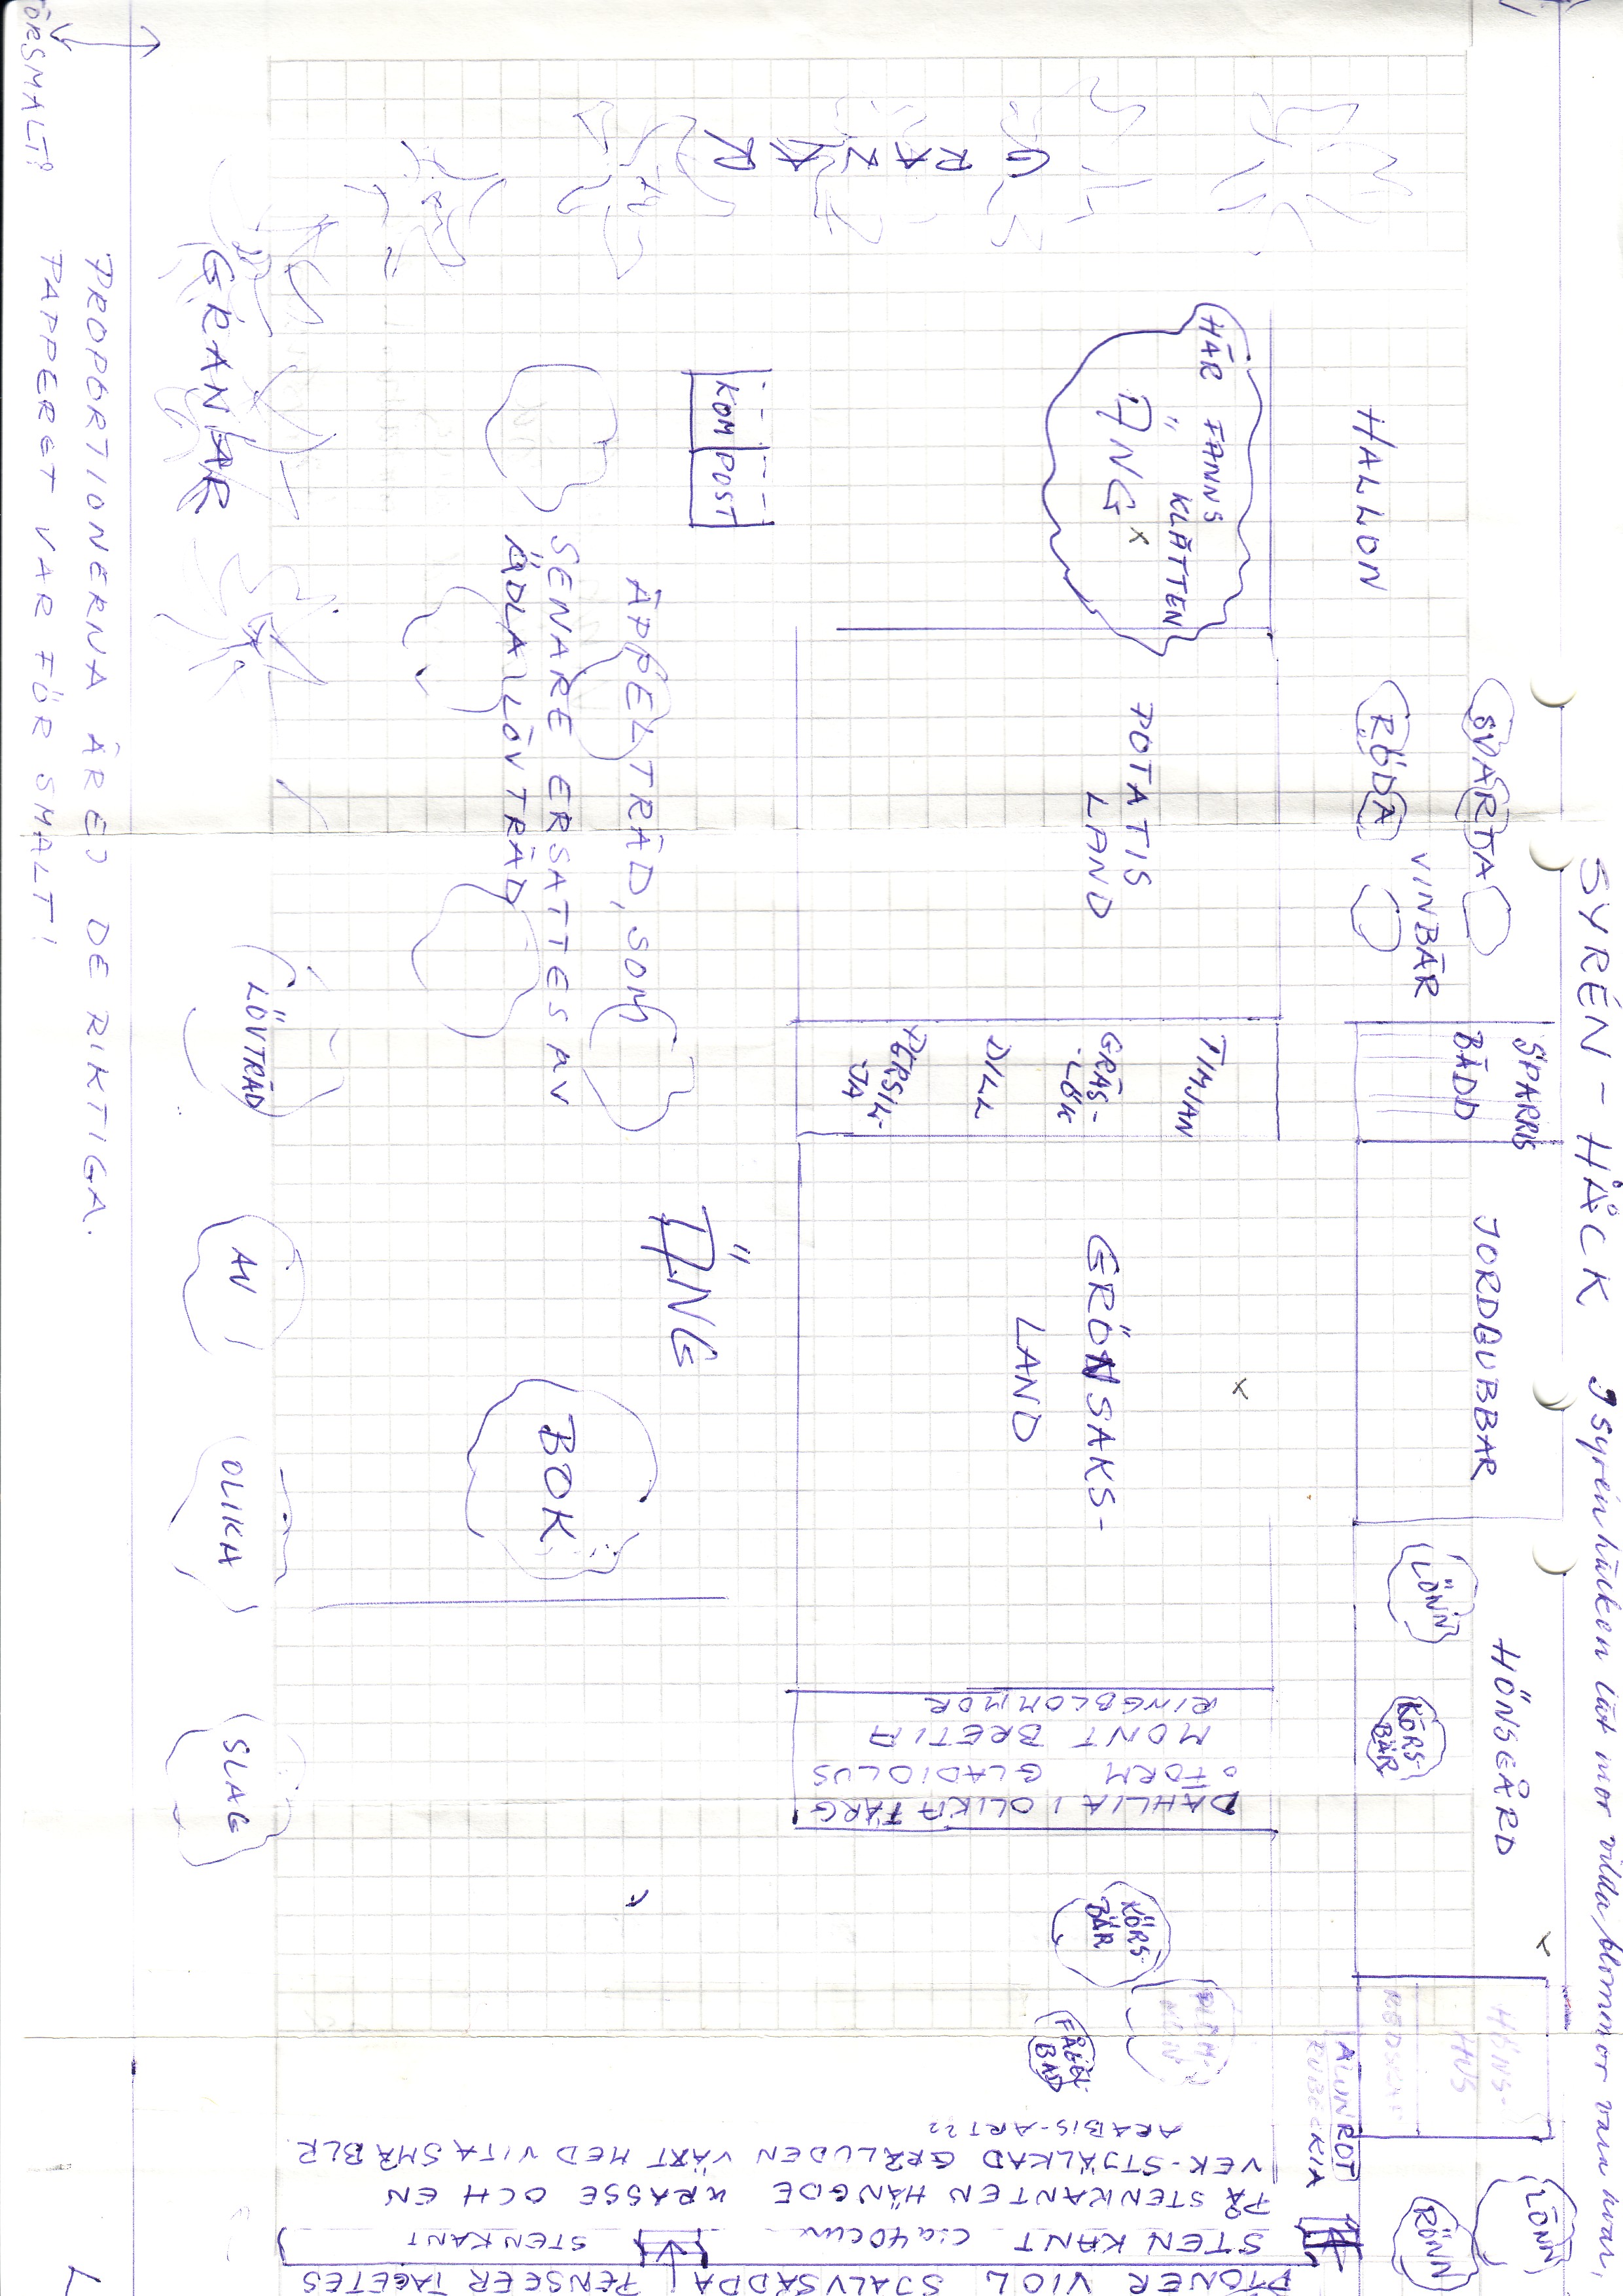 SYRÉN-HÄCK
I syrénhäcken lät mor vilda blommor vara kvar,
GRANAR
HALLON
HÄR FANNS
KLÄTTEN
ÄNG
SVARTA
RÖDA
VINBÄR
SPARRIS
BÄDD
JORDGUBBAR
LÖNN
KÖRS-
BÄR
HÖNSGÅRD
HÖNS-
HUS
REDSKAP
LÖNN
RÖNN
ALUNROT
RUBECKIA
POTATIS
LAND
TIMJAN
GRÄS-
-LÖK
DILL
PERSIL-
JA
GRÖNSAKS-
LAND
DAHLIA I OLIKA FÄRG
O FORM GLADIOLUS
MONTBRETIA
RINGBLOMMOR
KÖRS-
BÄR
FÅGEL
BAD
KOM POST
ÄPPELTRÄD, SOM
SENARE ERSATTES AV
ÄDLA LÖVTRÄD
ÄNG
BOK
GRANAR
LÖVTRÄD
AV
OLIKA
SLAG
PIONER VIOL SJÄLVSÅDDA PENSEER TAGETES
STENKANT c:a 40 cm STENKANT
PÅ STENKANTEN HÄNGDE KRASSE OCH EN
VEK-STJÄLKAD GRÅLUDEN VÄXT MED VITA SMÅ BLR
ARABIS-ART??
PROPORTIONERNA ÄR EJ DE RIKTIGA.
PAPPERET VAR FÖR SMALT!
FÖR SMALT?